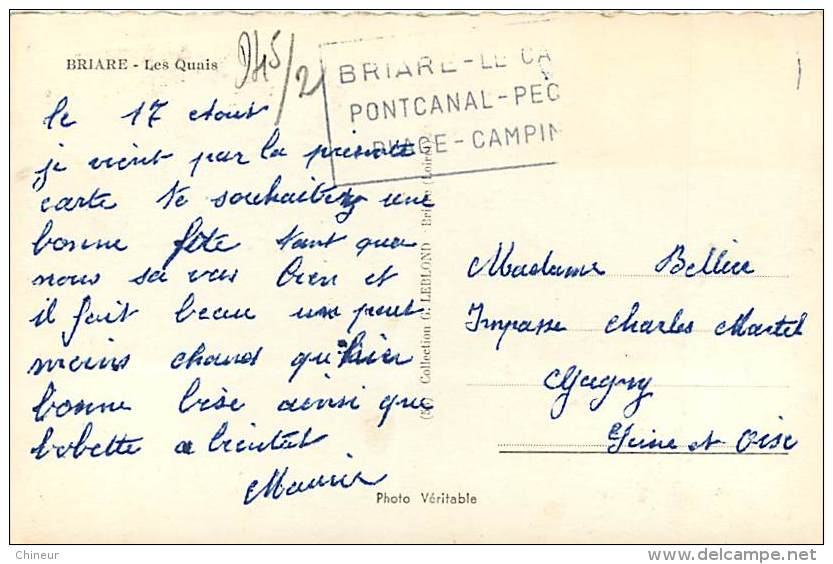 BRIARE - Les Quais
945/2
BRIARE-LE CA
PONTCANAL-PEC
PLAGE-CAMPIN
le 17 Aout
je vient par la présente
carte te souhaitez une
bonne fête tant que
nous sa vas bien et
il fait beau un peut
moins chaud qu'hier
bonne bise ainsi que
bobette a bientot
Maurice
Madame Bellier
Impasse Charles Martel
Gagny
Seine et Oise
Collection G. LEBLOND (Loiret)
Photo Véritable
Chineur
delcampe.net